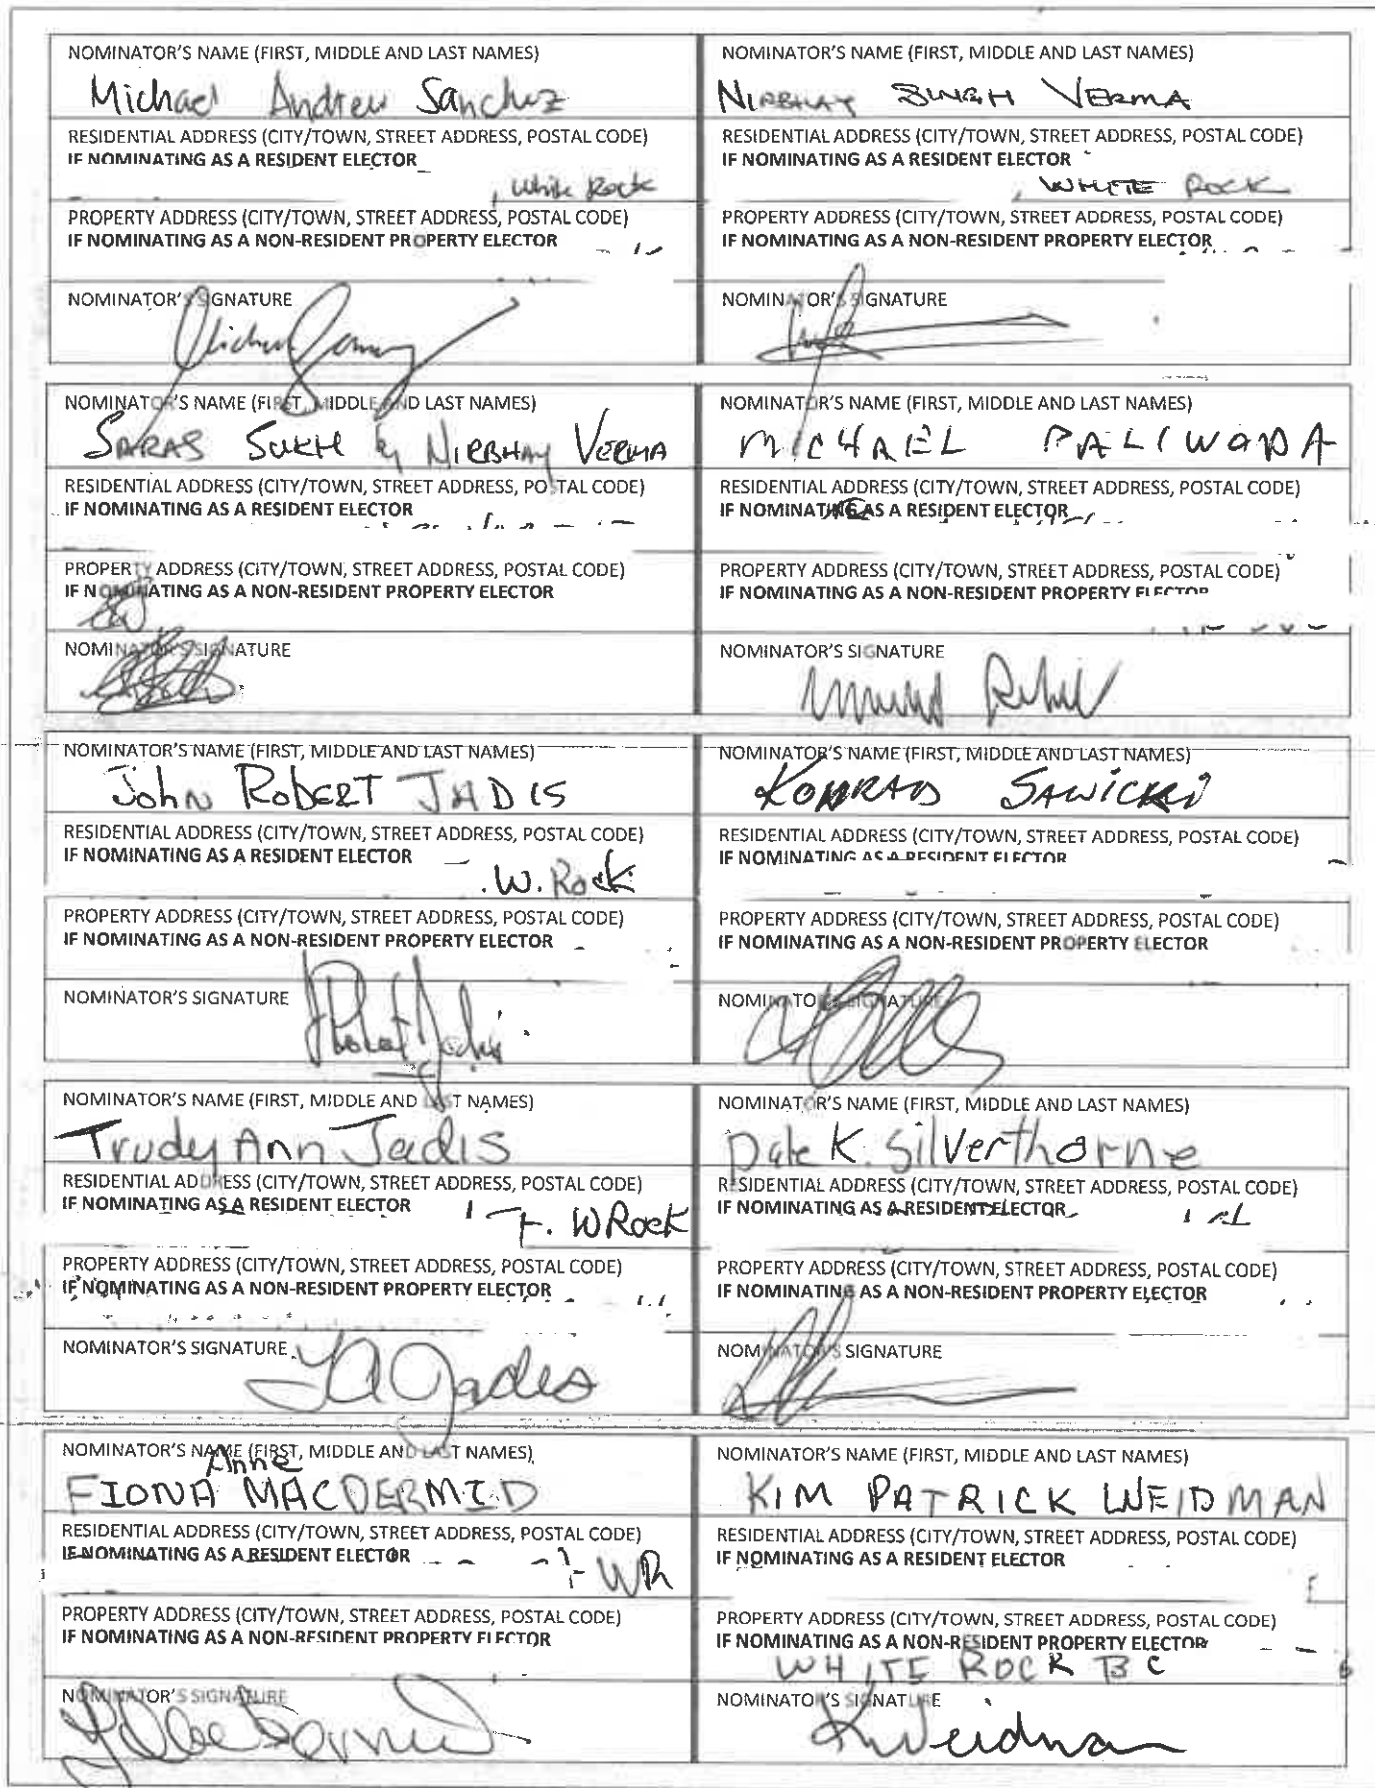 NOMINATOR'S NAME (FIRST, MIDDLE AND LAST NAMES)
Michael Andrew Sanchez
RESIDENTIAL ADDRESS (CITY/TOWN, STREET ADDRESS, POSTAL CODE)
IF NOMINATING AS A RESIDENT ELECTOR
, White Rock
PROPERTY ADDRESS (CITY/TOWN, STREET ADDRESS, POSTAL CODE)
IF NOMINATING AS A NON-RESIDENT PROPERTY ELECTOR
NOMINATOR'S SIGNATURE
NOMINATOR'S NAME (FIRST, MIDDLE AND LAST NAMES)
NIRBHAY SINGH VERMA
RESIDENTIAL ADDRESS (CITY/TOWN, STREET ADDRESS, POSTAL CODE)
IF NOMINATING AS A RESIDENT ELECTOR
, WHITE ROCK
PROPERTY ADDRESS (CITY/TOWN, STREET ADDRESS, POSTAL CODE)
IF NOMINATING AS A NON-RESIDENT PROPERTY ELECTOR
NOMINATOR'S SIGNATURE
NOMINATOR'S NAME (FIRST, MIDDLE AND LAST NAMES)
SARAS SUKH NIRBHAY VERMA
RESIDENTIAL ADDRESS (CITY/TOWN, STREET ADDRESS, POSTAL CODE)
IF NOMINATING AS A RESIDENT ELECTOR
PROPERTY ADDRESS (CITY/TOWN, STREET ADDRESS, POSTAL CODE)
IF NOMINATING AS A NON-RESIDENT PROPERTY ELECTOR
NOMINATOR'S SIGNATURE
NOMINATOR'S NAME (FIRST, MIDDLE AND LAST NAMES)
MICHAEL PALIWODA
RESIDENTIAL ADDRESS (CITY/TOWN, STREET ADDRESS, POSTAL CODE)
IF NOMINATING AS A RESIDENT ELECTOR
PROPERTY ADDRESS (CITY/TOWN, STREET ADDRESS, POSTAL CODE)
IF NOMINATING AS A NON-RESIDENT PROPERTY ELECTOR
NOMINATOR'S SIGNATURE
NOMINATOR'S NAME (FIRST, MIDDLE AND LAST NAMES)
John RobERT JADIS
RESIDENTIAL ADDRESS (CITY/TOWN, STREET ADDRESS, POSTAL CODE)
IF NOMINATING AS A RESIDENT ELECTOR
. W. Rock
PROPERTY ADDRESS (CITY/TOWN, STREET ADDRESS, POSTAL CODE)
IF NOMINATING AS A NON-RESIDENT PROPERTY ELECTOR
NOMINATOR'S SIGNATURE
NOMINATOR'S NAME (FIRST, MIDDLE AND LAST NAMES)
KONRAD SAWICKI
RESIDENTIAL ADDRESS (CITY/TOWN, STREET ADDRESS, POSTAL CODE)
IF NOMINATING AS A RESIDENT ELECTOR
PROPERTY ADDRESS (CITY/TOWN, STREET ADDRESS, POSTAL CODE)
IF NOMINATING AS A NON-RESIDENT PROPERTY ELECTOR
NOMINATOR'S SIGNATURE
NOMINATOR'S NAME (FIRST, MIDDLE AND LAST NAMES)
Trudy Ann Jadis
RESIDENTIAL ADDRESS (CITY/TOWN, STREET ADDRESS, POSTAL CODE)
IF NOMINATING AS A RESIDENT ELECTOR
WRock
PROPERTY ADDRESS (CITY/TOWN, STREET ADDRESS, POSTAL CODE)
IF NOMINATING AS A NON-RESIDENT PROPERTY ELECTOR
NOMINATOR'S SIGNATURE
TA Jadis
NOMINATOR'S NAME (FIRST, MIDDLE AND LAST NAMES)
Dale K. Silverthorne
RESIDENTIAL ADDRESS (CITY/TOWN, STREET ADDRESS, POSTAL CODE)
IF NOMINATING AS A RESIDENT ELECTOR
PROPERTY ADDRESS (CITY/TOWN, STREET ADDRESS, POSTAL CODE)
IF NOMINATING AS A NON-RESIDENT PROPERTY ELECTOR
NOMINATOR'S SIGNATURE
NOMINATOR'S NAME (FIRST, MIDDLE AND LAST NAMES)
Anne
FIONA MACDERMID
RESIDENTIAL ADDRESS (CITY/TOWN, STREET ADDRESS, POSTAL CODE)
IF NOMINATING AS A RESIDENT ELECTOR
WR
PROPERTY ADDRESS (CITY/TOWN, STREET ADDRESS, POSTAL CODE)
IF NOMINATING AS A NON-RESIDENT PROPERTY ELECTOR
NOMINATOR'S SIGNATURE
NOMINATOR'S NAME (FIRST, MIDDLE AND LAST NAMES)
KIM PATRICK WEIDMAN
RESIDENTIAL ADDRESS (CITY/TOWN, STREET ADDRESS, POSTAL CODE)
IF NOMINATING AS A RESIDENT ELECTOR
PROPERTY ADDRESS (CITY/TOWN, STREET ADDRESS, POSTAL CODE)
IF NOMINATING AS A NON-RESIDENT PROPERTY ELECTOR
WHITE ROCK BC
NOMINATOR'S SIGNATURE
K Weidman